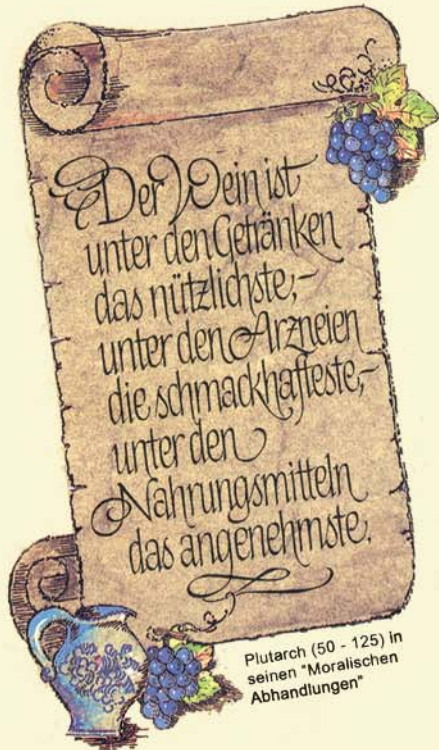 Der Wein ist
unter den Getränken
das nützlichste,-
unter den Arzneien
die schmackhafteste,-
unter den
Nahrungsmitteln
das angenehmste.
Plutarch (50 - 125) in
seinen "Moralischen
Abhandlungen"